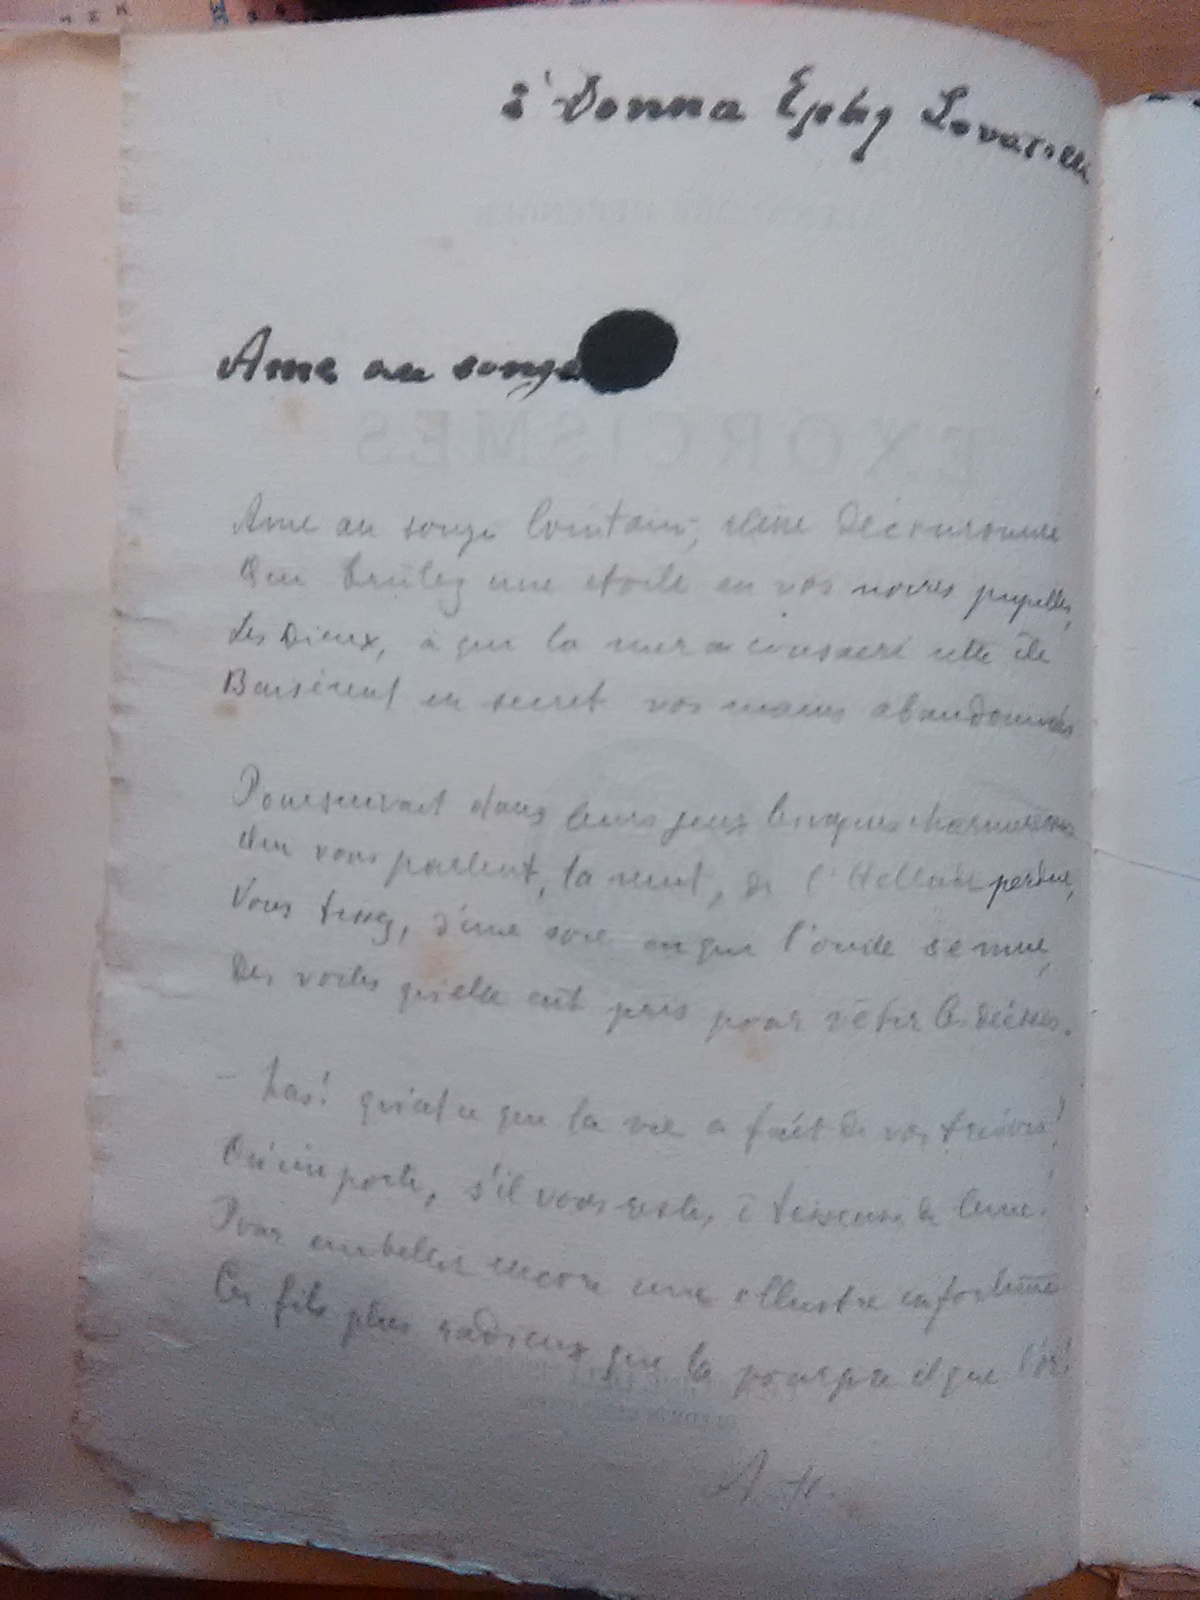 à Donna
Ame au songe
Ame au songe lointain, reine découronnée
Qui brûlez une étoile en vos noires pupilles,
Les Dieux, à qui la mer a consacré cette île
Baisèrent en secret vos mains abandonnées
Poursuivant dans leurs jeux les vagues charmeresses
Qui vous parlent, la nuit, de l'Hellade perdue,
Vous tissez, d'une soie en que l'onde remue,
Des voiles qu'elle eût pris pour vêtir les déesses.
– Las! qu'est ce que la vie a fait de vos trésors!
Qu'importe, s'il vous reste, ô tisseuse de lune!
Pour embellir encore une illustre infortune
Ces fils plus radieux que la pourpre et que l'or!
A H.
EXORCISMES